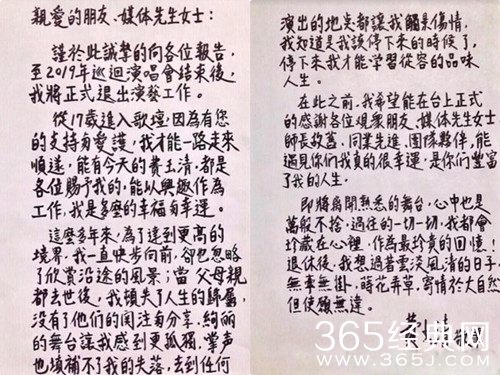 親愛的朋友、媒体先生女士：
謹於此誠摯的向各位報告，
至2019年巡迴演唱會結束後，
我將正式退出演藝工作。
從17歲進入歌壇，因為有您
的支持與愛護，我才能一路走來
順遂，能有今天的費玉清，都是
各位賜予我的，能以興趣作為
工作，我是多麼的幸福與幸運。
這麼多年來，為了達到更高的
境界，我一直快步向前，卻也忽略
了欣賞沿途的風景；當父母親
都去世後，我頓失了人生的歸屬，
没有了他們的関注與分享，絢麗
的舞台讓我感到更孤獨，掌声
也填補不了我的失落，去到任何
演出的地點都讓我觸景傷情，
我知道是我該停下來的時候了，
停下來我才能学習從容的品味
人生。
在此之前，我希望能在台上正式
的感谢各位观衆朋友、媒体先生女士
師長故舊、同業先進、團隊夥伴，能
遇見你們我真的很幸運，是你們豐富
了我的人生。
即將离開熟悉的舞台，心中也是
萬般不捨，過往的一切一切，我都會
珍藏在心裡，作為最珍貴的回憶！
退休後，我想過着雲淡風清的日子，
無牽無掛，蒔花弄草，寄情於大自然
但使願無違。
費玉清 敬上
365经典网
www.365J.com